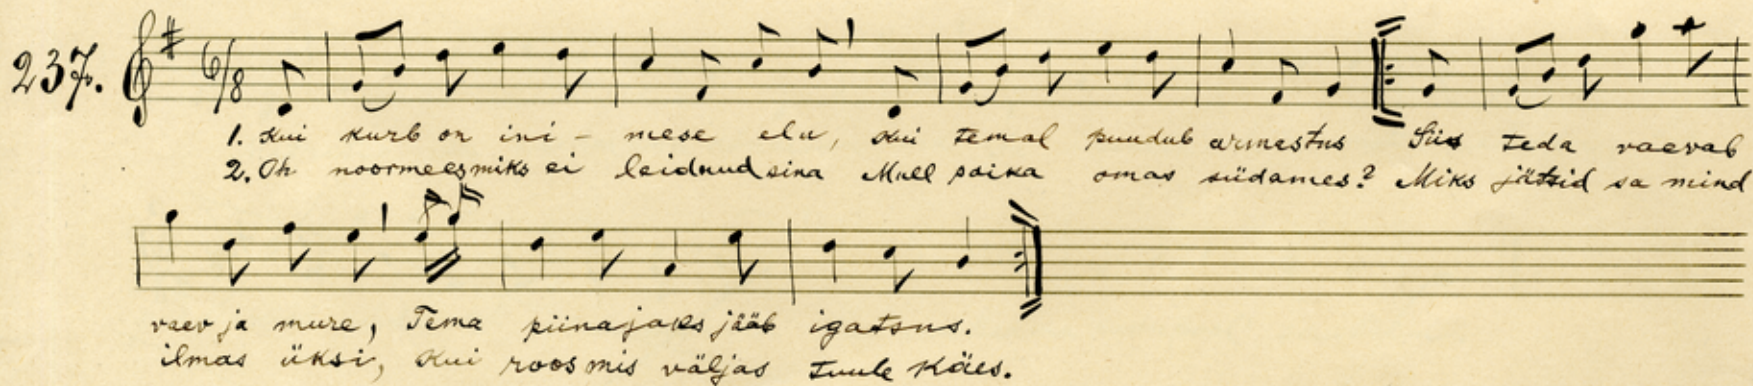 237. 6/8
1. Kui kurb on ini - mese elu, kui temal puudub armastus Siis teda vaevab
2. Oh noormees miks ei leidnud sina Mull paika omas südames? Miks jätsid sa mind
vaev ja mure, Tema piinajaks jääb igatsus.
ilmas üksi, Kui roos mis väljas tuule käes.